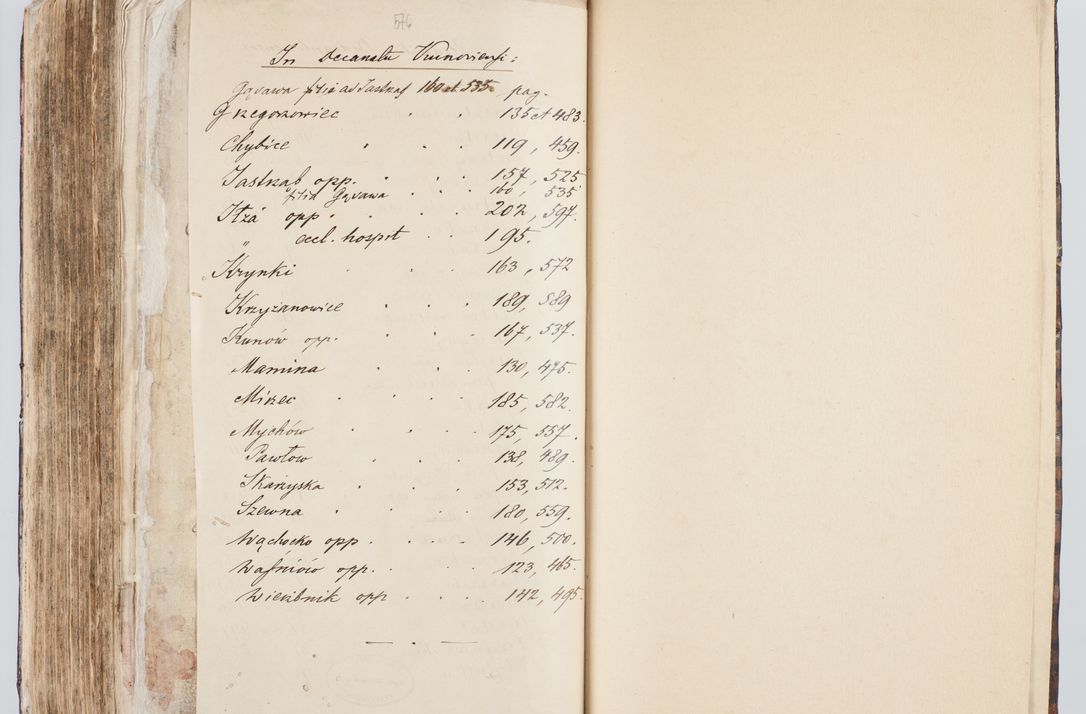 576
In Decanatu Kunoviensi:
Gąvawa filia ad Jastrząb 160 et 535. pag.
Grzegorzowiec . . 135 et 483.
Chybice . . . 119, 459.
Jastrząb opp. . . . 157, 525
filia Gąvawa . . . 160, 535
Iłża opp . . . . 202, 597.
„ eccl. hospit . . 195.
Krynki . . . 163, 572
Krzyżanowice . . . 189, 589
Kunów opp. . . 167, 537.
Mamina . . . 130, 475.
Mirzec . . . . 185, 582.
Mychów . . . 175, 557.
Pawłow . . . 138, 489.
Skarzyska . . . 153, 512.
Szewna . . . . 180, 559.
Wąchocko opp . . . . 146, 500.
Waśniów opp. . . . 123, 465.
Wierzbnik opp . . . . 142, 495.